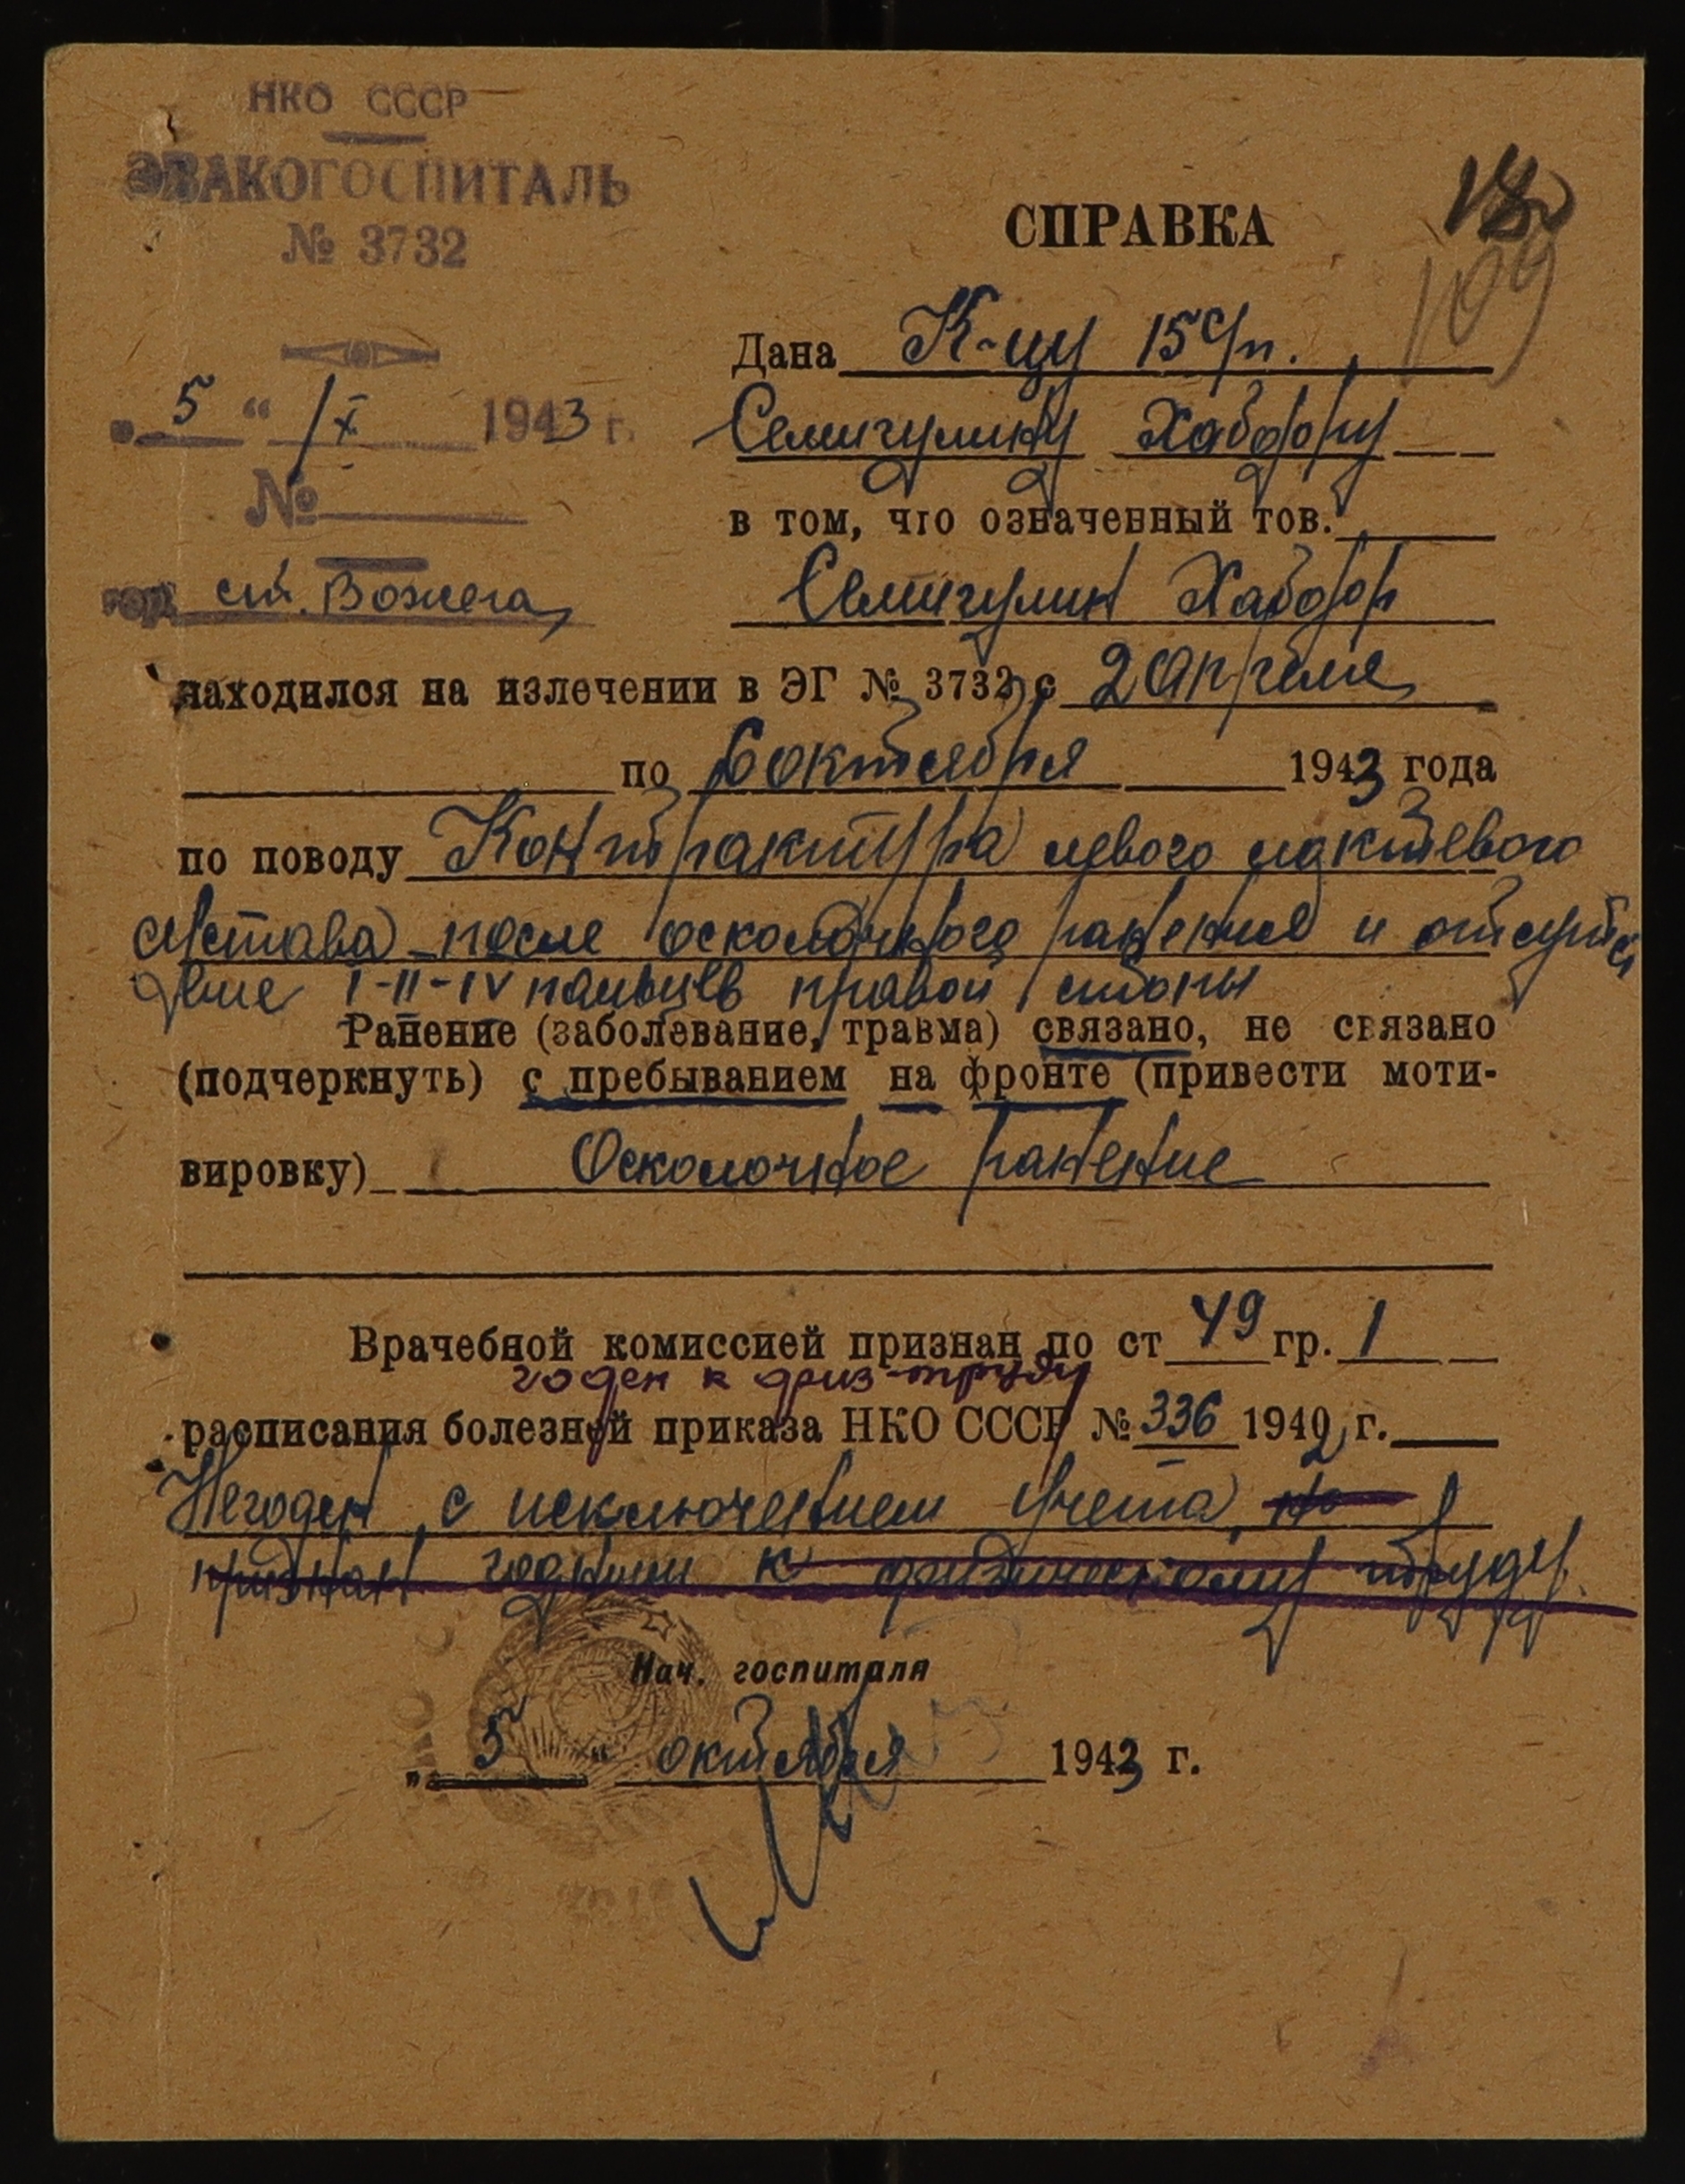 НКО СССР
ЭВАКОГОСПИТАЛЬ
№ 3732
„5“ /X 1943 г.
№
гор. ст. Вожега
СПРАВКА
109
Дана К-цу 15 с/п.
Семигулину Хабдру
в том, что означенный тов.
Семигулин Хабдр
находился на излечении в ЭГ № 3732 с 2 апреля
по 6 октября 1943 года
по поводу Контрактура левого локтевого
сустава после осколочного ранения и отсутс
двие I-II-IV пальцев правой стопы
Ранение (заболевание, травма) связано, не связано
(подчеркнуть) с пребыванием на фронте (привести моти-
вировку) Осколочное ранение
Врачебной комиссией признан по ст 49 гр. 1
годен к физ-труду
расписания болезней приказа НКО СССР № 336 1942 г.
Негоден с исключением учета, но
признан годным к физическому труду.
Нач. госпиталя
„5“ октября 1943 г.